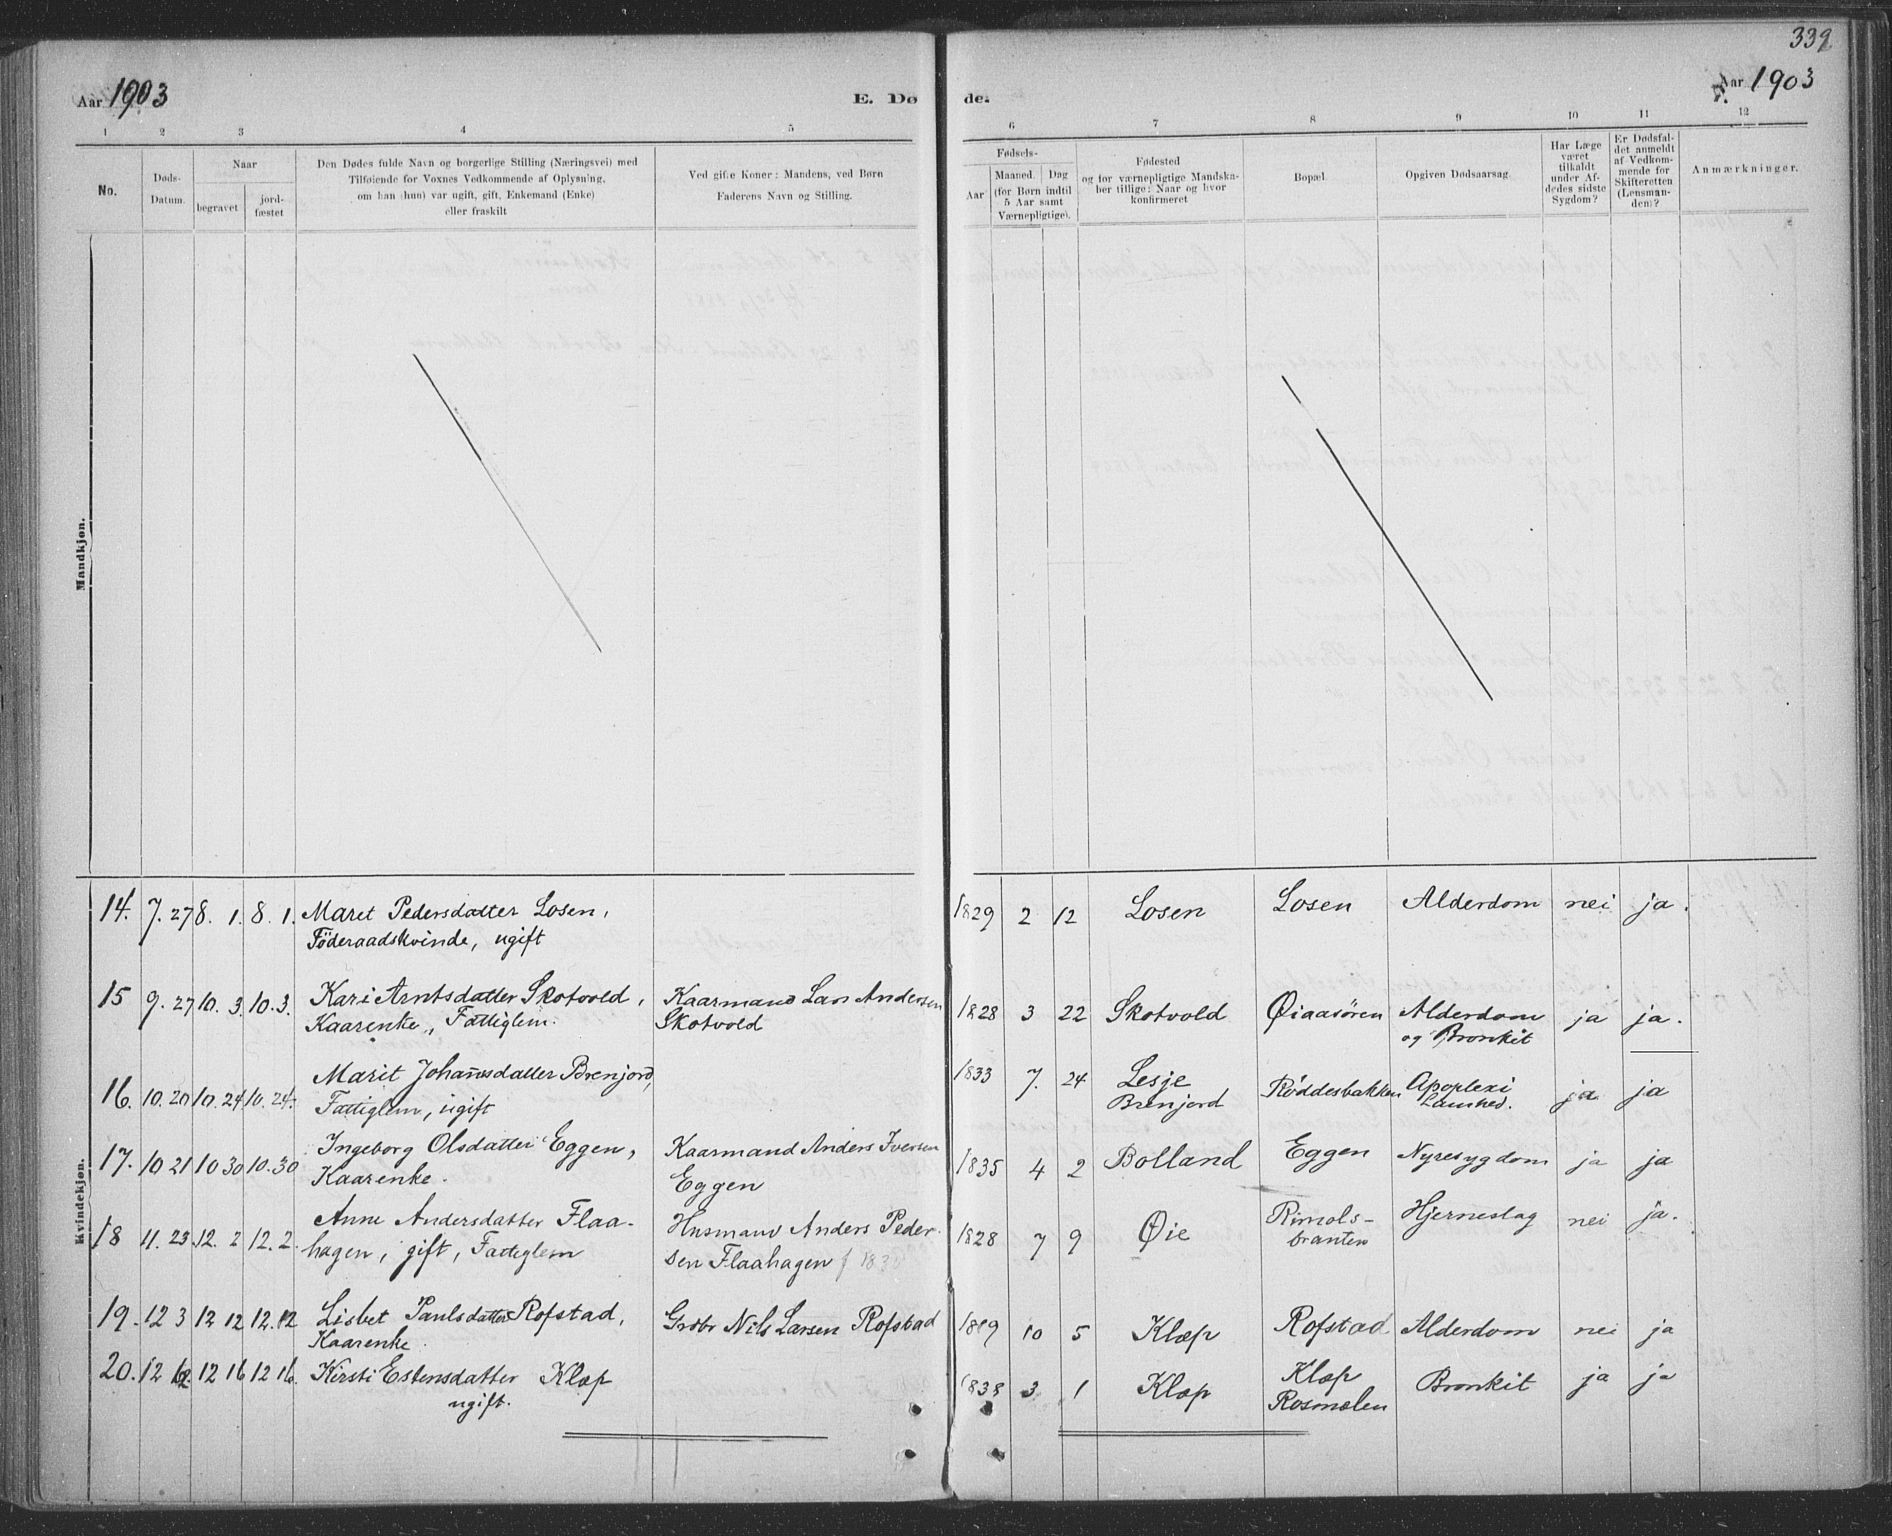 339
Aar 1903
E. Dø de.
Aar 1903
1 2 3 4 5 6 7 8 9 10 11 12
No.
Døds-
Datum.
Naar
begravet
jord-
fæstet
Den Dødes fulde Navn og borgerlige Stilling (Næringsvei) med
Tilføiende for Voxnes Vedkommende af Oplysning,
om han (hun) var ugift, gift, Enkemand (Enke)
eller fraskilt
Ved gifte Koner: Mandens, ved Børn
Faderens Navn og Stilling.
Fødsels-
Aar
Maaned.
Dag
(for Børn indtil
5 Aar samt
Værnepligtige).
Fødested
og for værnepligtige Mandska-
ber tillige: Naar og hvor
konfirmeret
Bopæl.
Opgiven Dødsaarsag.
Har Læge
været
tilkaldt
under Af-
dødes sidste
Sygdom?
Er Dødsfal-
det anmeldt
af Vedkom-
mende for
Skifteretten
(Lensman-
den)?
Anmærkninger.
Mandkjøn.
Kvindekjøn.
14. 7. 27 8. 1. 8. 1. Maret Pedersdatter Losen, 1829 2 12 Losen Losen Alderdom nei ja.
Föderaadskvinde, ugift
15 9. 27 10. 3. 10. 3. Kari Arntsdatter Skotvold, Kaarmand Lars Andersen 1828 3 22 Skotvold Øiaasören Alderdom ja ja.
Kaarenke, Fattiglem. Skotvold og Bronkit
16. 10. 20 10. 24 10. 24. Marit Johannsdatter Brenjord, 1833 7. 24 Lesje Røddesbakken Apoplexi ja ja
Fattiglem, ugift Brenjord Lamhed.
17. 10 21 10 30 10. 30 Ingeborg Olsdatter Eggen, Kaarmand Anders Iversen 1835 4 2 Bolland Eggen Nyresygdom ja ja
Kaarenke. Eggen
18 11. 23 12. 2 12. 2. Anne Andersdatter Flaa- Husmand Anders Peder- 1828 7 9 Øie Rimols- Hjerneslag nei ja.
hagen, gift, Fattiglem sen Flaahagen branten
19. 12 3 12 12 12. 12 Lisbet Paulsdatter Rofstad, Grdbr Nils Larsen Rofstad 1819 10 5 Klæp Rofstad Alderdom nei ja
Kaarenke.
20. 12 12 16 12 16. Kirsti Estensdatter Klæp 1838 3 1 Klæp Klæp Bronkit ja ja
ugift. Rosmælen